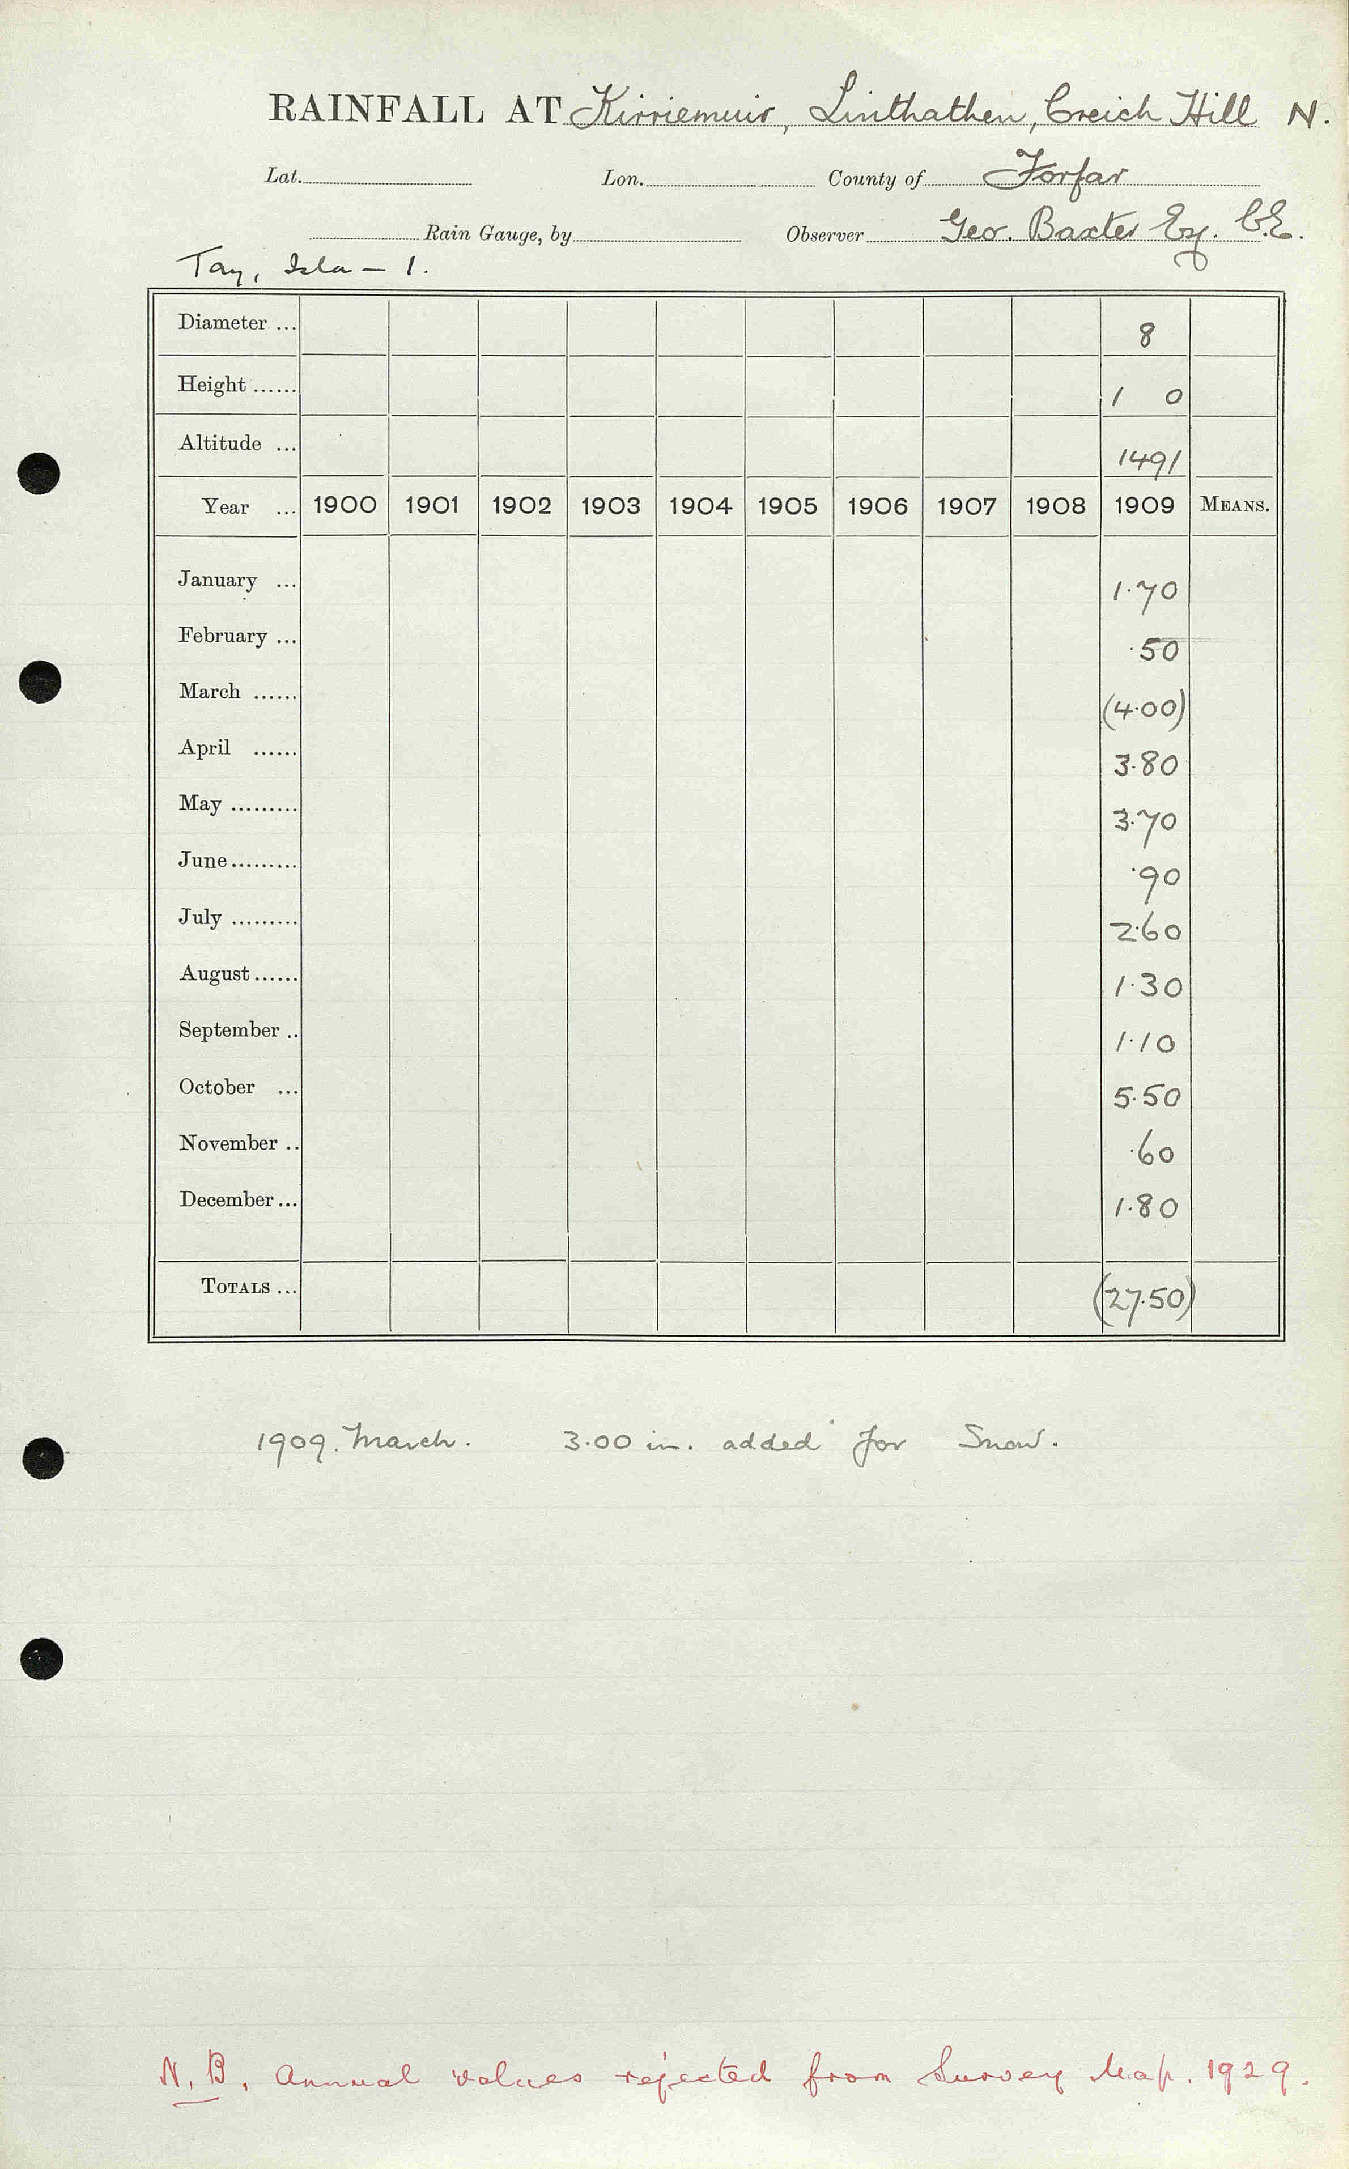 RAINFALL AT Kirriemuir, Linthathen, Creich Hill N.
Lat. Lon. County of Forfar
Rain Gauge, by Observer Geo. Baxter Esq. C.E.
Tay, Isla - 1.
Diameter ... 8
Height ...... 1 0
Altitude ... 1491
Year ... 1900 1901 1902 1903 1904 1905 1906 1907 1908 1909 MEANS.
January ... 1.70
February ... .50
March ...... (4.00)
April ...... 3.80
May ......... 3.70
June......... .90
July ......... 2.60
August ...... 1.30
September .. 1.10
October ... 5.50
November .. .60
December ... 1.80
TOTALS ... (27.50)
1909. March. 3.00 in. added for Snow.
N.B. Annual values rejected from Survey Map. 1929.